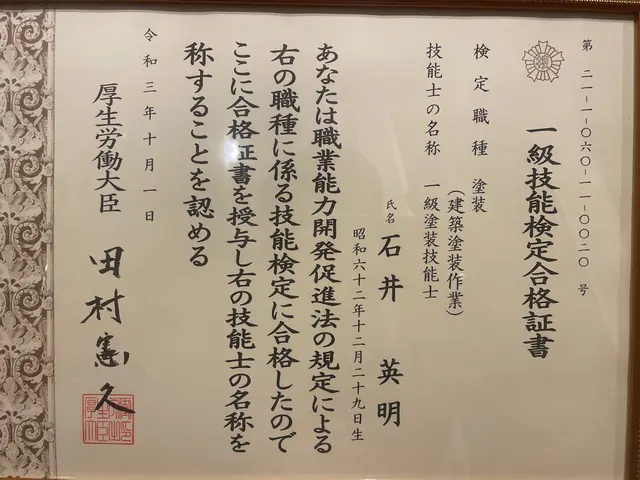 第二一-一-〇六〇-一一-〇〇二〇号
一級技能検定合格証書
検定職種 塗装
(建築塗装作業)
技能士の名称 一級塗装技能士
氏名 石井 英明
昭和六十二年十二月二十九日生
あなたは職業能力開発促進法の規定による
右の職種に係る技能検定に合格したので
ここに合格証書を授与し右の技能士の名称を
称することを認める
令和三年十月一日
厚生労働大臣 田村憲久